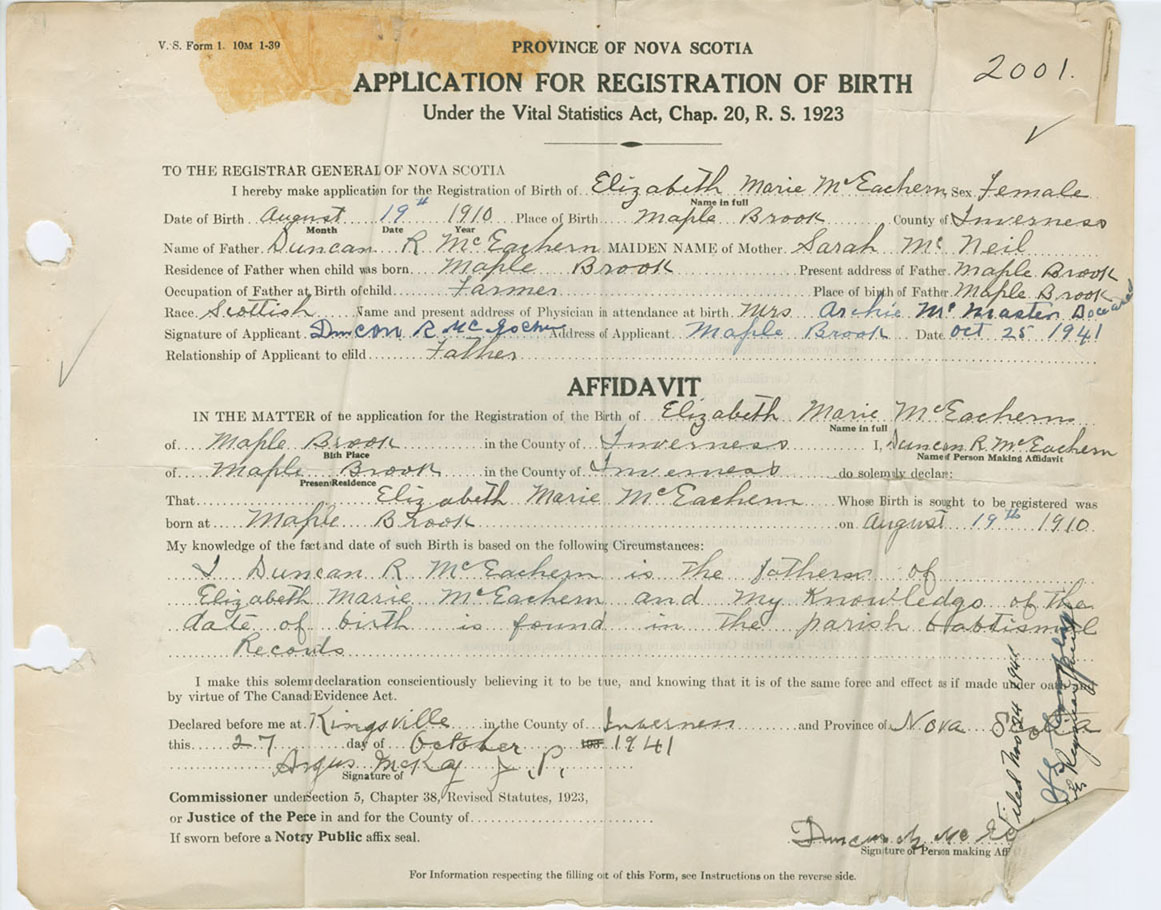 V. S. Form 1. 10M 1-39
PROVINCE OF NOVA SCOTIA
2001.
APPLICATION FOR REGISTRATION OF BIRTH
Under the Vital Statistics Act, Chap. 20, R. S. 1923
TO THE REGISTRAR GENERAL OF NOVA SCOTIA
I hereby make application for the Registration of Birth of Elizabeth Marie McEachern Sex Female
Name in full
Date of Birth August 19th 1910 Place of Birth Maple Brook County of Inverness
Month Date Year
Name of Father Duncan R McEachern MAIDEN NAME of Mother Sarah Mc Neil
Residence of Father when child was born Maple Brook Present address of Father Maple Brook
Occupation of Father at Birth of child Farmer Place of birth of Father Maple Brook
Race Scottish Name and present address of Physician in attendance at birth Mrs Archie Mc Master
Signature of Applicant Duncan R Mc Address of Applicant Maple Brook Date Oct 25 1941
Relationship of Applicant to child Father
AFFIDAVIT
IN THE MATTER of he application for the Registration of the Birth of Elizabeth Marie McEachern
Name in full
of Maple Brook in the County of Inverness I, Duncan R. McEachern
Birth Place Name of Person Making Affidavit
of Maple Brook in the County of Inverness do solemly declare:
Present Residence
That Elizabeth Marie McEachern Whose Birth is sought to be registered was
born at Maple Brook on August 19th 1910
My knowledge of the fact and date of such Birth is based on the following Circumstances:
I Duncan R McEachern is the father of
Elizabeth Marie McEachern and my Knowledge of the
date of birth is found in the parish baptismal
Records
I make this solemn declaration conscientiously believing it to be true, and knowing that it is of the same force and effect as if made under oath and
by virtue of The Canada Evidence Act.
Declared before me at Kingsville in the County of Inverness and Province of Nova Scotia
this 27 day of October 193 1941
Angus McKay J. P.
Signature of
Commissioner under Section 5, Chapter 38, Revised Statutes, 1923,
or Justice of the Peace in and for the County of
If sworn before a Notary Public affix seal.
Duncan R Mc
Signature of Person making Aff
Filed Nov 24 1941
For Information respecting the filling out of this Form, see Instructions on the reverse side.